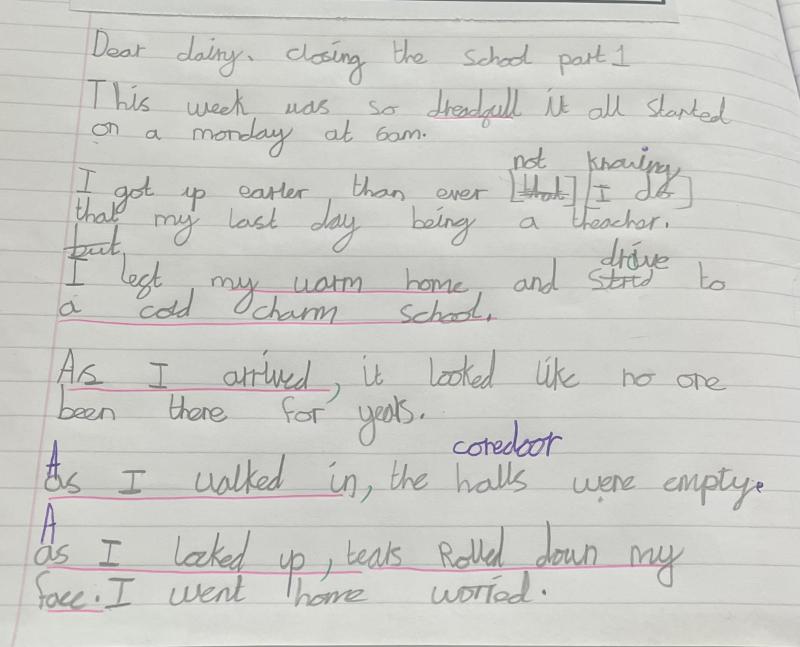 Dear dairy. closing the school part 1
This week was so dreadfull it all started
on a monday at 6am.
not knowing
I got up earler than ever [that] [I do]
that my last day being a theacher.
but
drive
I left my warm home, and to
a cold charm school.
As I arrived, it looked like no one
been there for years.
coredoor
As I walked in, the halls were empty.
A
as I looked up, tears Rolled down my
face. I went home woried.